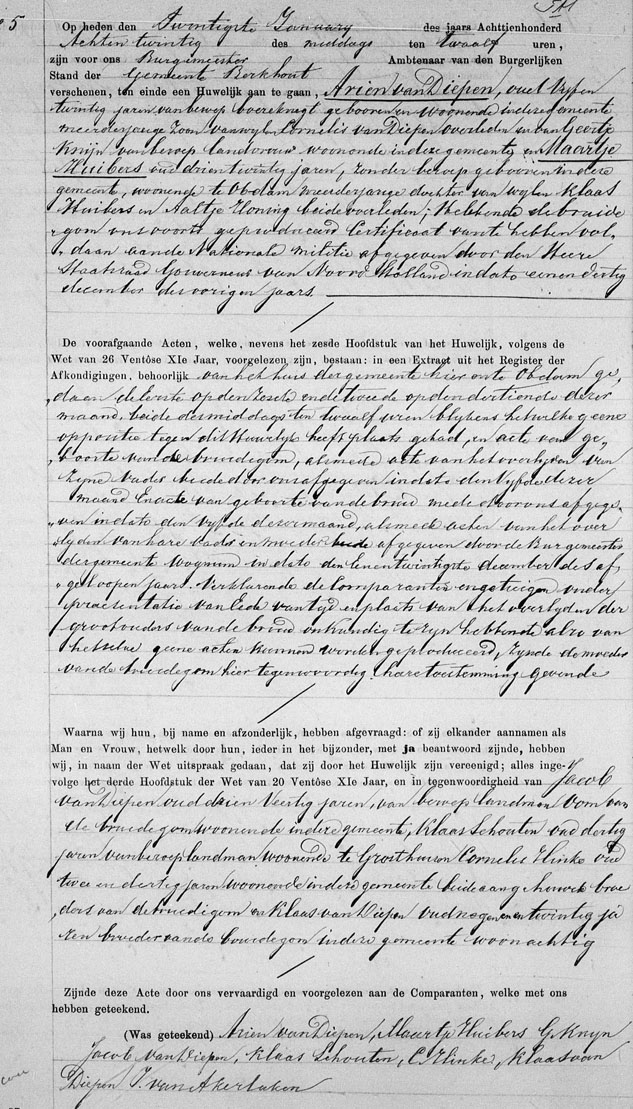 5
Op heden den Twintigste January des jaars Achttienhonderd
Achten twintig des middags ten twaalf uren,
zijn voor ons Burgemeester Ambtenaar van den Burgerlijken
Stand der Gemeente Berkhout
verschenen, ten einde een Huwelijk aan te gaan, Arien van Diepen, oud Vijfen
twintig jaren van beroep boereknegt gebooren en woonende indese gemeente
meerderjarige Zoon van wylen Cornelis van Diepen overleden en van Geertje
Knijn van beroep landvrouw woonende indeze gemeente, en Maartje
Huibers oud drientwintig jaren, zonder beroep gebooren indere
gemeente, woonende te Obdam meerderjarige dochter van wylen Klaas
Huibers en Aaltje Honing beide overleden; Hebbende de bruide
gom ons voorts geproduceerd Certificaat van te hebben vol
daan aan de Nationale militie afgegeven door den Heere
Staatsraad Gouverneur van Noord Holland in dato eenendertig
december des vorigen jaars.
De voorafgaande Acten, welke, nevens het zesde Hoofdstuk van het Huwelijk, volgens de
Wet van 26 Ventôse XIe Jaar, voorgelezen zijn, bestaan: in een Extract uit het Register der
Afkondigingen, behoorlijk van het huis der gemeente hier en te Obdam ge,
daan de Eerste op den Zesde en de tweede op den dertiende dezer
maand, beide des middags ten twaalf uren blykens hetwelke geene
oppositie tegen dit Huwelyk heeft plaats gehad, en acte van ge,
boorte van de bruidegom, alsmede acte van het overlyden van
Zyne vader beide door ons afgegeven in dato den Vyfde dezer
maand En acte van geboorte van de bruid mede door ons afgege,
ven in dato den vyfde dezer maand, alsmede acten van het over
lyden van hare vader en moeder beide afgegeven door de Burgemeester
der gemeente Wognum in dato den Eenentwintigste december des af,
geloopen jaars. Verklarende de Comparanten en getuigen onder
praesentatie van Eede van tyd en plaats van het overlyden der
grootouders van de bruid onkundig te zyn hebbende alzo van
hetzelve geene acten kunnen worden geproduceerd, zynde de moeder
van de bruidegom hier tegenwoordig hare toestemming gevende
Waarna wij hun, bij name en afzonderlijk, hebben afgevraagd: of zij elkander aannamen als
Man en Vrouw, hetwelk door hun, ieder in het bijzonder, met ja beantwoord zijnde, hebben
wij, in naam der Wet uitspraak gedaan, dat zij door het Huwelijk zijn vereenigd; alles inge-
volge het derde Hoofdstuk der Wet van 20 Ventôse XIe Jaar, en in tegenwoordigheid van Jacob
van Diepen oud drien Veertig jaren, van beroep landman Oom van
de bruidegom woonende indere gemeente, Klaas Schouten oud dertig
jaren van beroep landman woonende te Grosthuizen Cornelis Hinke oud
twee en dertig jaren woonende indere gemeente beide aangehuwde broe
ders van de bruidigom en Klaas van Diepen oud negenentwintig ja
ren broeder van de bruidegom indere gemeente woonachtig
Zijnde deze Acte door ons vervaardigd en voorgelezen aan de Comparanten, welke met ons
hebben geteekend.
(Was geteekend) Arien van Diepen, Maartje Huibers G. Knyn
Jacob van Diepen, Klaas Schouten, C. Hinke, Klaas van
Diepen J. van Akerlaken